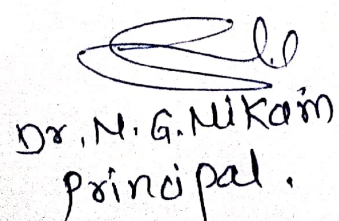 Dr. N. G. Nikam
Principal.